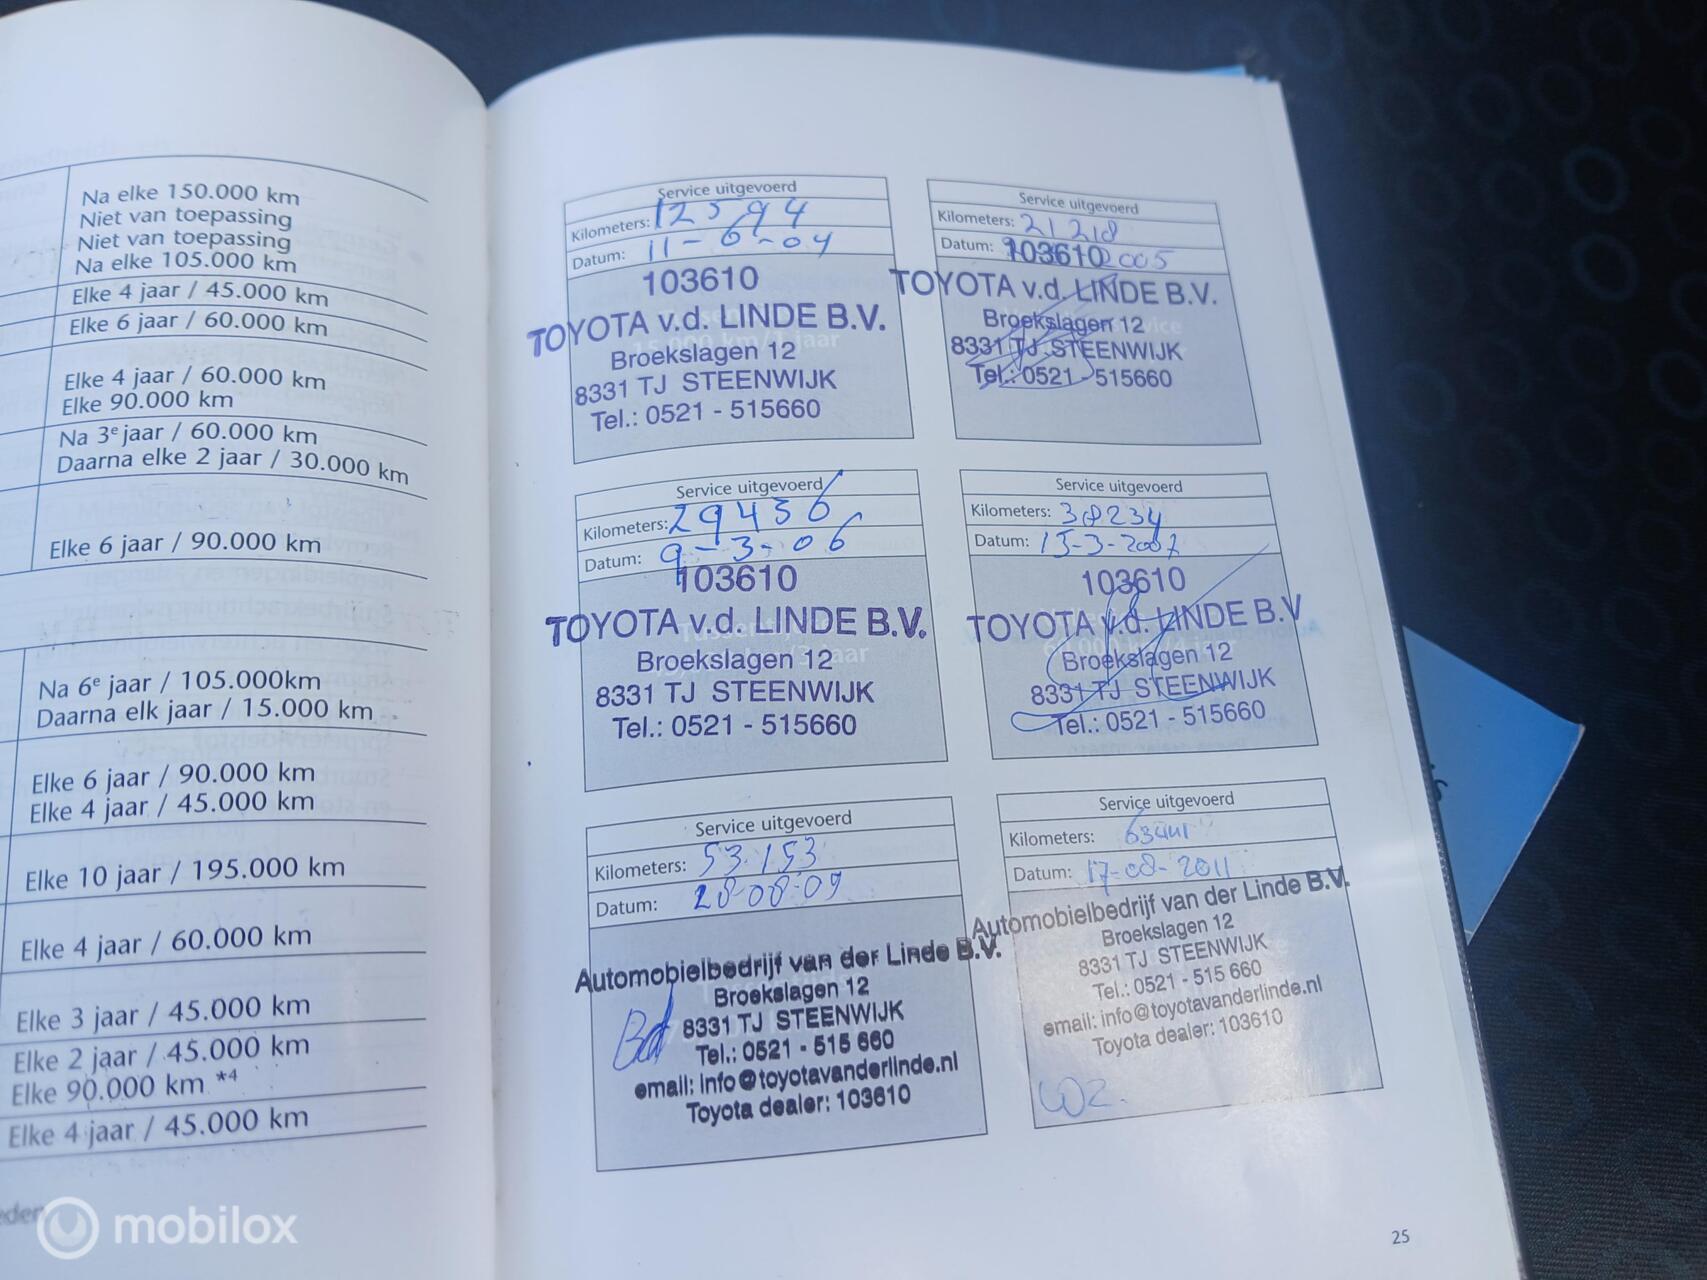 Na elke 150.000 km
Niet van toepassing
Niet van toepassing
Na elke 105.000 km
Elke 4 jaar / 45.000 km
Elke 6 jaar / 60.000 km
Elke 4 jaar / 60.000 km
Elke 90.000 km
Na 3e jaar / 60.000 km
Daarna elke 2 jaar / 30.000 km
Elke 6 jaar / 90.000 km
Na 6e jaar / 105.000km
Daarna elk jaar / 15.000 km
Elke 6 jaar / 90.000 km
Elke 4 jaar / 45.000 km
Elke 10 jaar / 195.000 km
Elke 4 jaar / 60.000 km
Elke 3 jaar / 45.000 km
Elke 2 jaar / 45.000 km
Elke 90.000 km *4
Elke 4 jaar / 45.000 km
Service uitgevoerd
Kilometers: 12594
Datum: 11-6-04
103610
TOYOTA v.d. LINDE B.V.
Broekslagen 12
8331 TJ STEENWIJK
Tel.: 0521 - 515660
Service uitgevoerd
Kilometers: 21218
Datum: 2005
103610
TOYOTA v.d. LINDE B.V.
Broekslagen 12
8331 TJ STEENWIJK
Tel.: 0521 - 515660
Service uitgevoerd
Kilometers: 29456
Datum: 9-3-06
103610
TOYOTA v.d. LINDE B.V.
Broekslagen 12
8331 TJ STEENWIJK
Tel.: 0521 - 515660
Service uitgevoerd
Kilometers: 38234
Datum: 15-3-2007
103610
TOYOTA v.d. LINDE B.V
Broekslagen 12
8331 TJ STEENWIJK
Tel.: 0521 - 515660
Service uitgevoerd
Kilometers: 53.153
Datum: 28-08-09
Automobielbedrijf van der Linde B.V.
Broekslagen 12
8331 TJ STEENWIJK
Tel.: 0521 - 515 660
email: info@toyotavanderlinde.nl
Toyota dealer: 103610
Service uitgevoerd
Kilometers:
Datum: 17-08-2011
Automobielbedrijf van der Linde B.V.
Broekslagen 12
8331 TJ STEENWIJK
Tel.: 0521 - 515 660
email: info@toyotavanderlinde.nl
Toyota dealer: 103610
25
mobilox